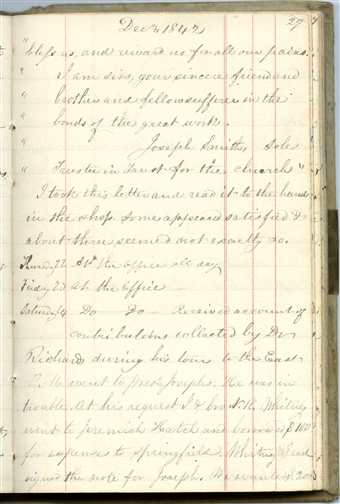 Dec 1842 297
" bless us, and reward us for all our pains.
" I am sirs, your sincere friend and
" brother and fellow sufferer in the
" bonds of the great work.
" Joseph Smith, Sole
" Trustee in Trust for the church"
I took this letter and read it to the hands
in the shop. Some appeared satisfied &
about three seemed not exactly so.
Thursday 22 At the Office all day
Friday 23 At the Office
Saturday 24 Do Do — Received account of
contributions collected by Dr
Richards during his tour to the East
P.M. went to prest. Josephs. He was in
trouble. At his request I & bro N. K. Whitney
went to Jeremiah Hatch and borrowed $100
for expenses to Springfield. Whitney & I
signed the note for Joseph. We wanted $200